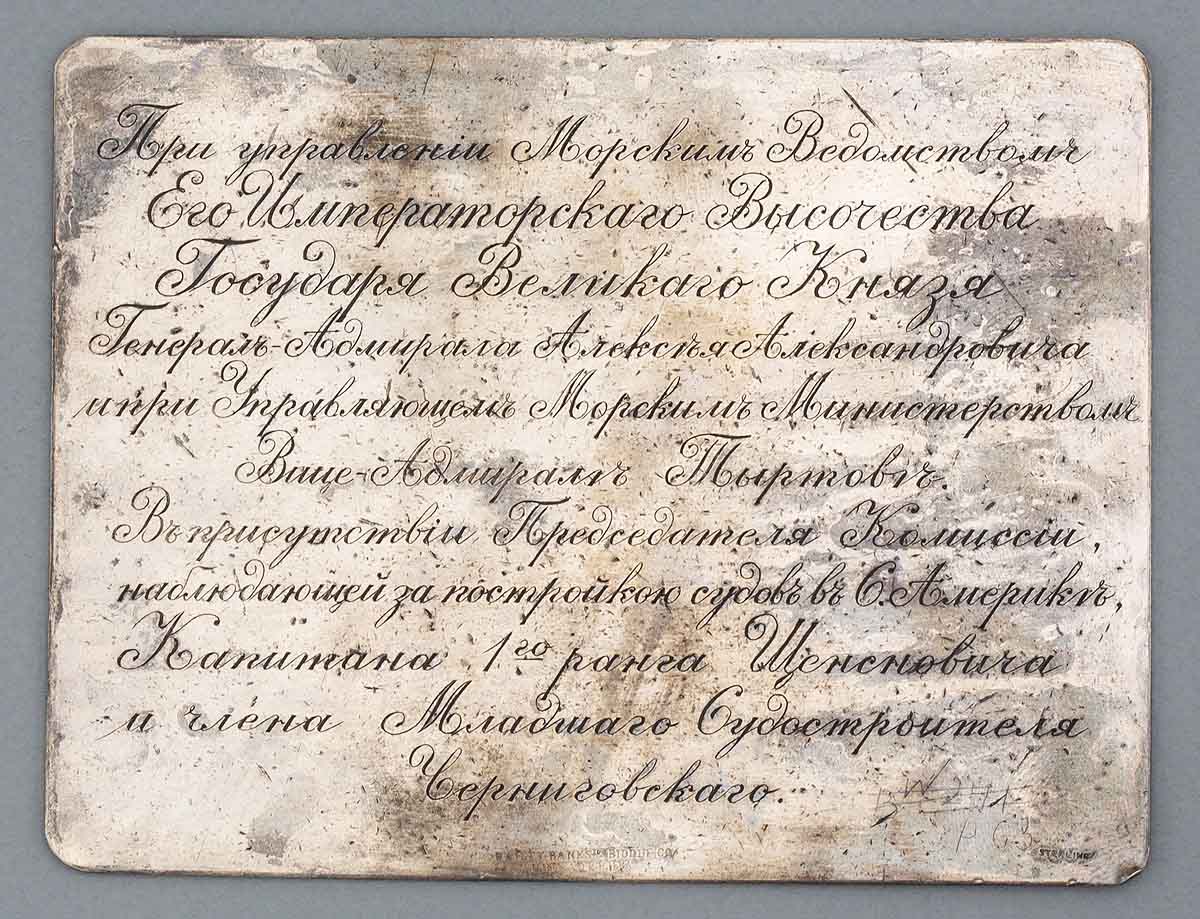 При управленіи Морскимъ Ведомствомъ
Его Императорскаго Высочества
Государя Великаго Князя
Генералъ-Адмирала Алексѣя Александровича
и при Управляющемъ Морскимъ Министерствомъ
Вице-Адмиралѣ Тыртовѣ.
Въ присутствіи Предсѣдателя Комиссіи,
наблюдающей за постройкою судовъ въ С. Америкѣ,
Капитана 1го ранга Щенсновича
и члена Младшаго Судостроителя
Черниговскаго.
BAILEY BANKS & BIDDLE CO.
STERLING